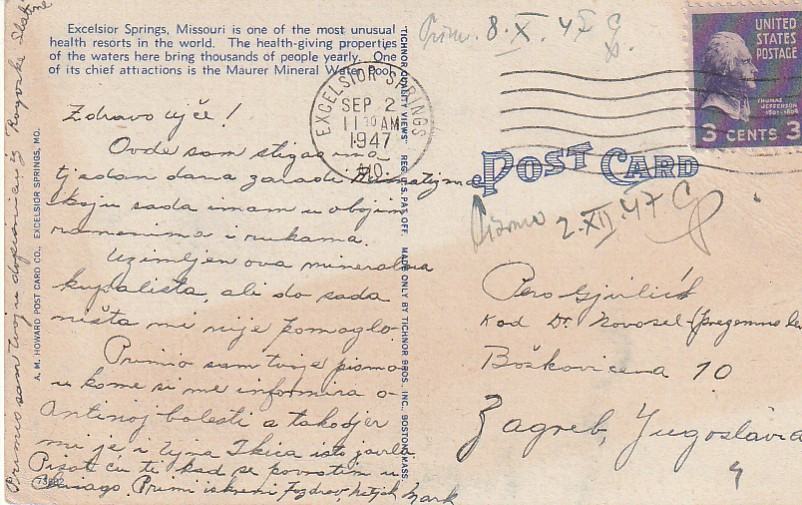 Excelsior Springs, Missouri is one of the most unusual
health resorts in the world. The health-giving properties
of the waters here bring thousands of people yearly. One
of its chief attractions is the Maurer Mineral Water Pool.
Zdravo ujče!
Ovde sam stigao na
tjedan dana zarade
koju sada imam u objim
ramenima i rukama.
Uzimljem ova mineralna
kupališta, ali do sada
ništa mi nije pomoglo.
Primio sam tvoje pismo
u kome si me informira o
Antinoj bolesti a takodjer
mi je i Ikica isto javila.
Pisat ću ti kad se povratim u
Chicago. Primi iskreni pozdrav, Mark
73682
Primio sam tvoju iz Rogaške Slatine
A. M. HOWARD POST CARD CO., EXCELSIOR SPRINGS, MO.
"TICHNOR QUALITY VIEWS" REG. U. S. PAT. OFF. MADE ONLY BY TICHNOR BROS. INC., BOSTON, MASS.
8.X.47
EXCELSIOR SPRINGS
SEP 2
11 30 AM
1947
MO.
UNITED
STATES
POSTAGE
THOMAS
JEFFERSON
1801-1809
3 CENTS 3
POST CARD
Pismo 2.XII.47
Pero
Kod Dr. Novosel
Boškovićeva 10
Zagreb, Yugoslavia